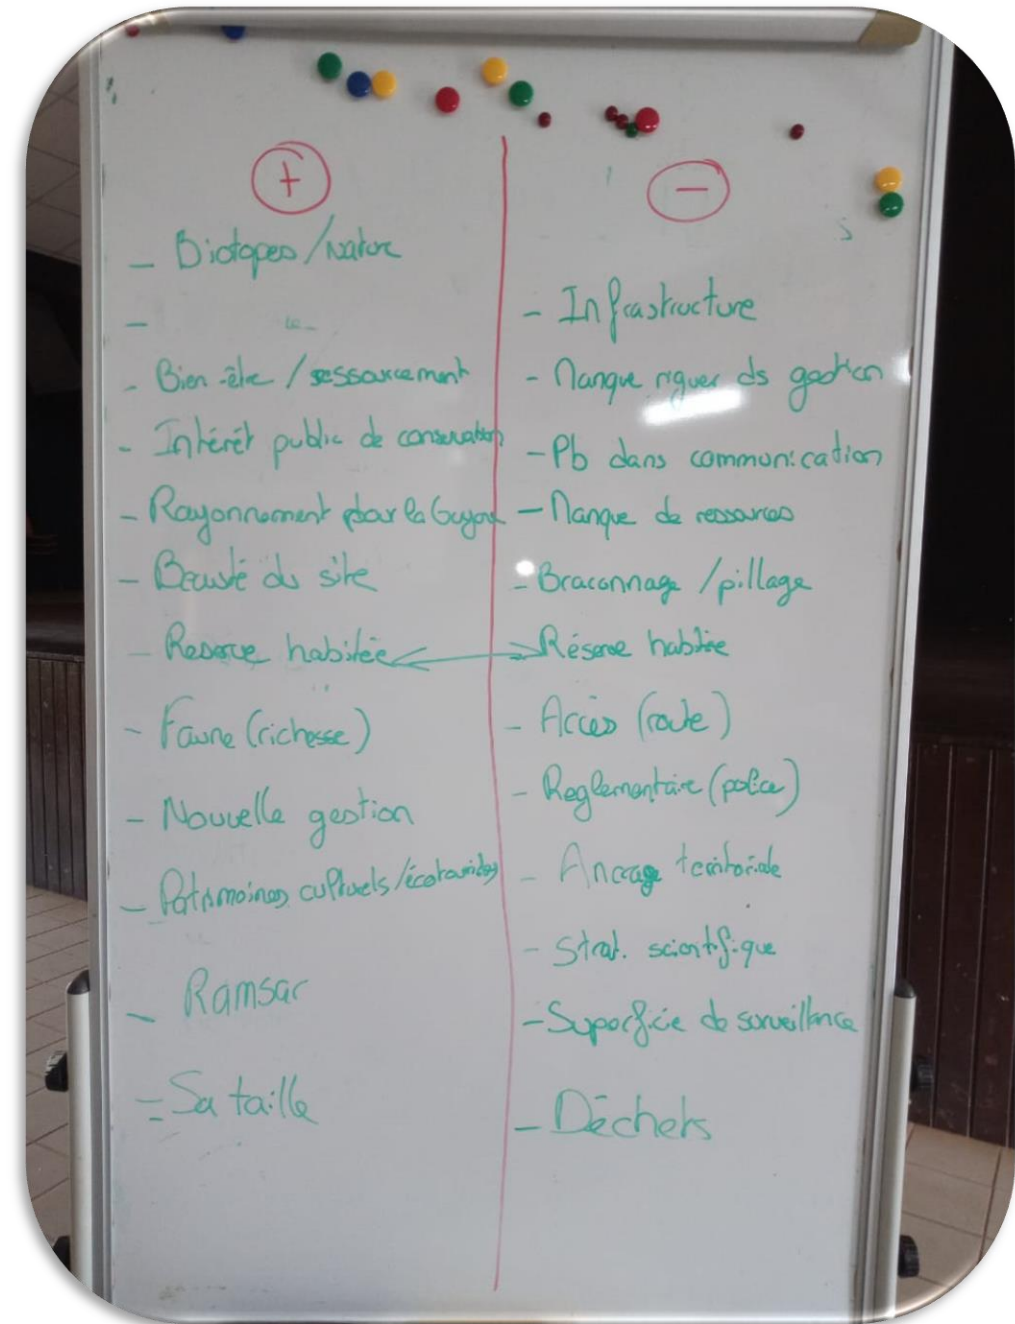 +
- Biotopes/Nature
-
- Bien-être / ressourcement
- Intérêt public de conservation
- Rayonnement pour la Guyane
- Beauté du site
- Reserve habitée
- Faune (richesse)
- Nouvelle gestion
- Patrimoines culturels/écotourides
- Ramsar
= Sa taille
-
- Infrastructure
- Manque riguer ds gestion
- Pb dans communication
- Manque de ressources
- Braconnage /pillage
- Réserve habitée
- Accès (route)
- Reglementaire (police)
- Ancrage territoriale
- Strat. scientifique
- Superficie de surveillance
- Déchets